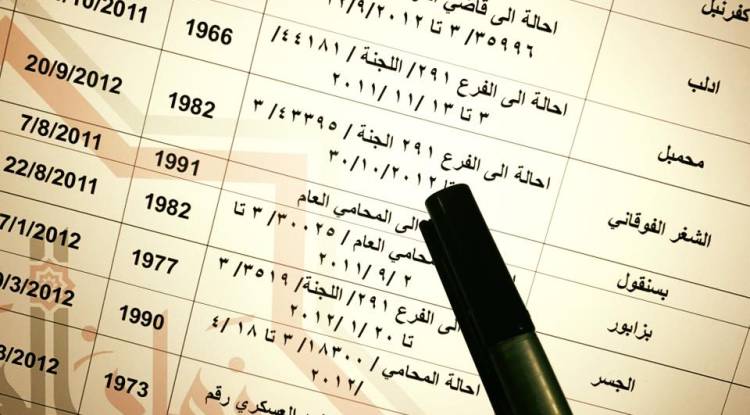 كفرنبل
احالة الى قاضي
٣٥٩٩٦/ ٣ تا ٢٢/٩/٢٠١٢
/10/2011
ادلب
احالة الى الفرع ٢٩١/ اللجنة /٤٤١٨١/
٣ تا ١٣ /١١/ ٢٠١١
1966
20/9/2012
محمبل
احالة الى الفرع ٢٩١ الجنة / ٤٣٣٩٥/ ٣
٣٠/١٠/٢٠١٢
1982
7/8/2011
الشغر الفوقاني
الى المحامي العام
1991
22/8/2011
بسنقول
المحامي العام / ٣٠٠٢٥/ ٣ تا
٢ /٩/ ٢٠١١
1982
7/1/2012
بزابور
الى الفرع ٢٩١/ اللجنة/ ٣٥١٩/ ٣
تا ٢٠ /١/ ٢٠١٢
1977
/3/2012
الجسر
احالة المحامي /١٨٣٠٠/ ٣ تا ١٨ /٤/
٢٠١٢/
1990
/2012
العسكري رقم
1973